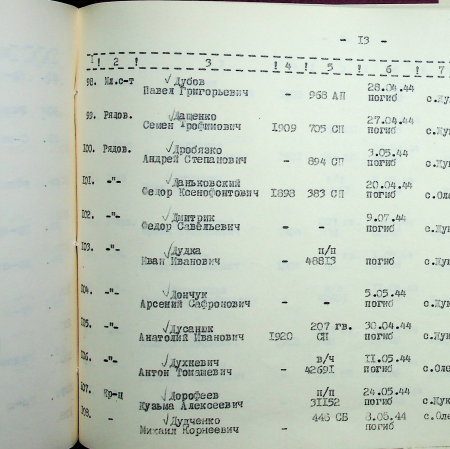 - 13 -
1! 2 ! 3 ! 4 ! 5 ! 6 ! 7
98. Мл.с-т √Дубов 28.04.44
Павел Григорьевич - 968 АП погиб
99. Рядов. √Дащенко 27.04.44
Семен Трофимович 1909 705 СП погиб
100. Рядов. √Дробязко 3.05.44
Андрей Степанович - 894 СП погиб
101. -"- √Даньковский 20.04.44
Федор Ксенофонтович 1898 383 СП погиб с.Оле
102. -"- √Дмитрик 9.07.44
Федор Савельевич - - погиб
103. -"- √Дудка п/п
Иван Иванович - 48813 погиб
104. -"- √Дончук 5.05.44
Арсений Сафронович - - погиб
105. -"- √Дусанюк 207 гв. 30.04.44
Анатолий Иванович 1920 СП погиб
106. -"- √Духневич в/ч 11.05.44
Антон Томашевич - 42691 погиб с.Оле
107. Кр-ц √Дорофеев п/п 24.05.44
Кузьма Алексеевич - 31152 погиб
108. - √Дудченко 446 СБ 8.06.44 с.Оле
Михаил Корнеевич - погиб